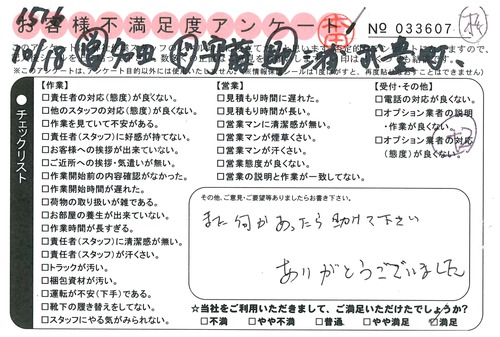 お客様不満足度アンケート
№ 033607
※このアンケートは、アンケート目的以外には使用いたしません。
チェックリスト
【作業】
□責任者の対応(態度)が良くない。
□他のスタッフの対応(態度)が良くない。
□作業を見ていて不安がある。
□責任者(スタッフ)に好感が持てない。
□お客様への挨拶が出来ていない。
□ご近所への挨拶・気遣いが無い。
□作業開始前の内容確認がなかった。
□作業開始時間が遅れた。
□荷物の取り扱いが雑である。
□お部屋の養生が出来ていない。
□作業時間が長すぎる。
□責任者(スタッフ)に清潔感が無い。
□責任者(スタッフ)が汗くさい。
□トラックが汚い。
□梱包資材が汚い。
□運転が不安(下手)である。
□靴下の履き替えをしてない。
□スタッフにやる気がみられない。
【営業】
□見積もり時間に遅れた。
□見積もり時間が長い。
□営業マンに清潔感が無い。
□営業マンが煙草くさい。
□営業マンが汗くさい。
□営業態度が良くない。
□営業の説明と作業が一致してない。
【受付・その他】
□電話の対応が良くない。
□オプション業者の説明
・作業が良くない。
□オプション業者の対応
(態度)が良くない。
その他、ご意見・ご要望等ありましたらお書き下さい。
また何かあったら助けて下さい
ありがとうございました
☆当社をご利用いただきまして、ご満足いただけたでしょうか?
□不満 □やや不満 □普通 □やや満足 □満足